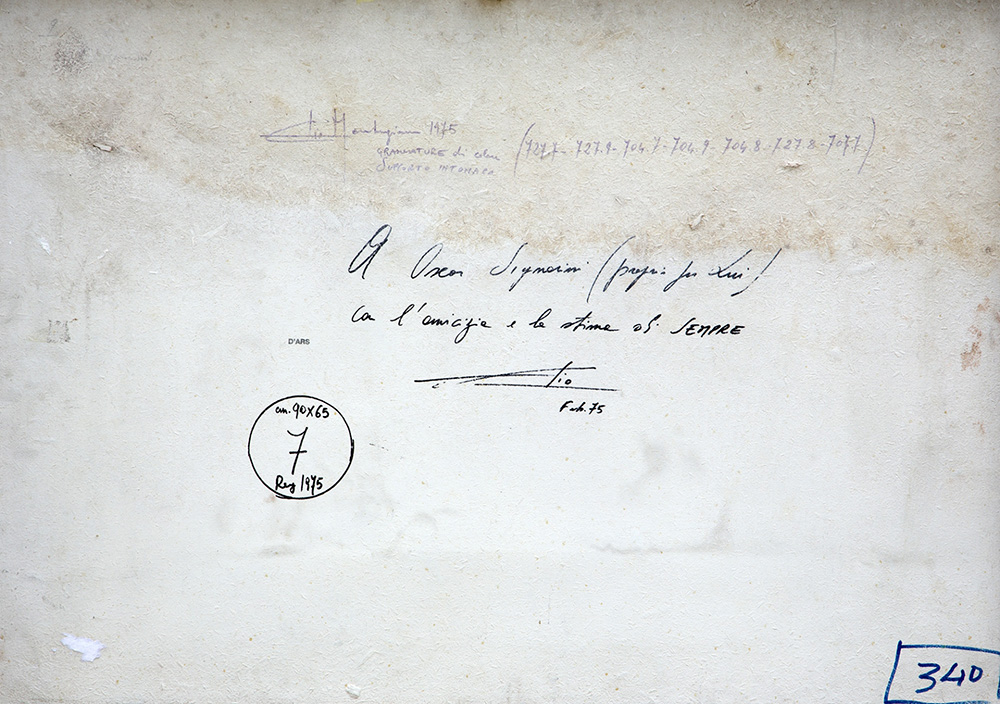 1975
GRANULATURE di colore (727.7 - 727.9 - 704.7 - 704.9 - 704.8 - 727.8 - 707.7)
SUPPORTO INTONACO
A Oscar Signorini (proprio per Lui)
con l'amicizia e la stima di SEMPRE
D'ARS
Tio
Feb. 75
cm. 90x65
7
Reg 1975
340